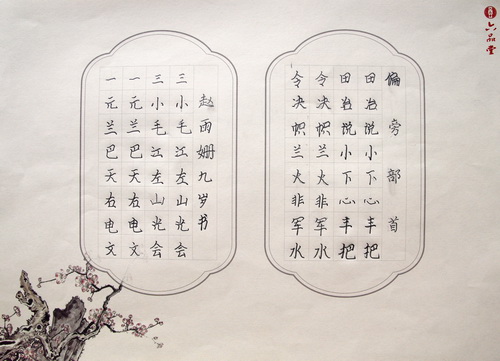 六品堂
偏旁部首
田说小下心丰把
田说小下心丰把
令决帜兰火非军水
令决帜兰火非军水
赵雨姗九岁书
三小毛江左山光会
三小毛江左山光会
一元兰巴天右电文
一元兰巴天右电文